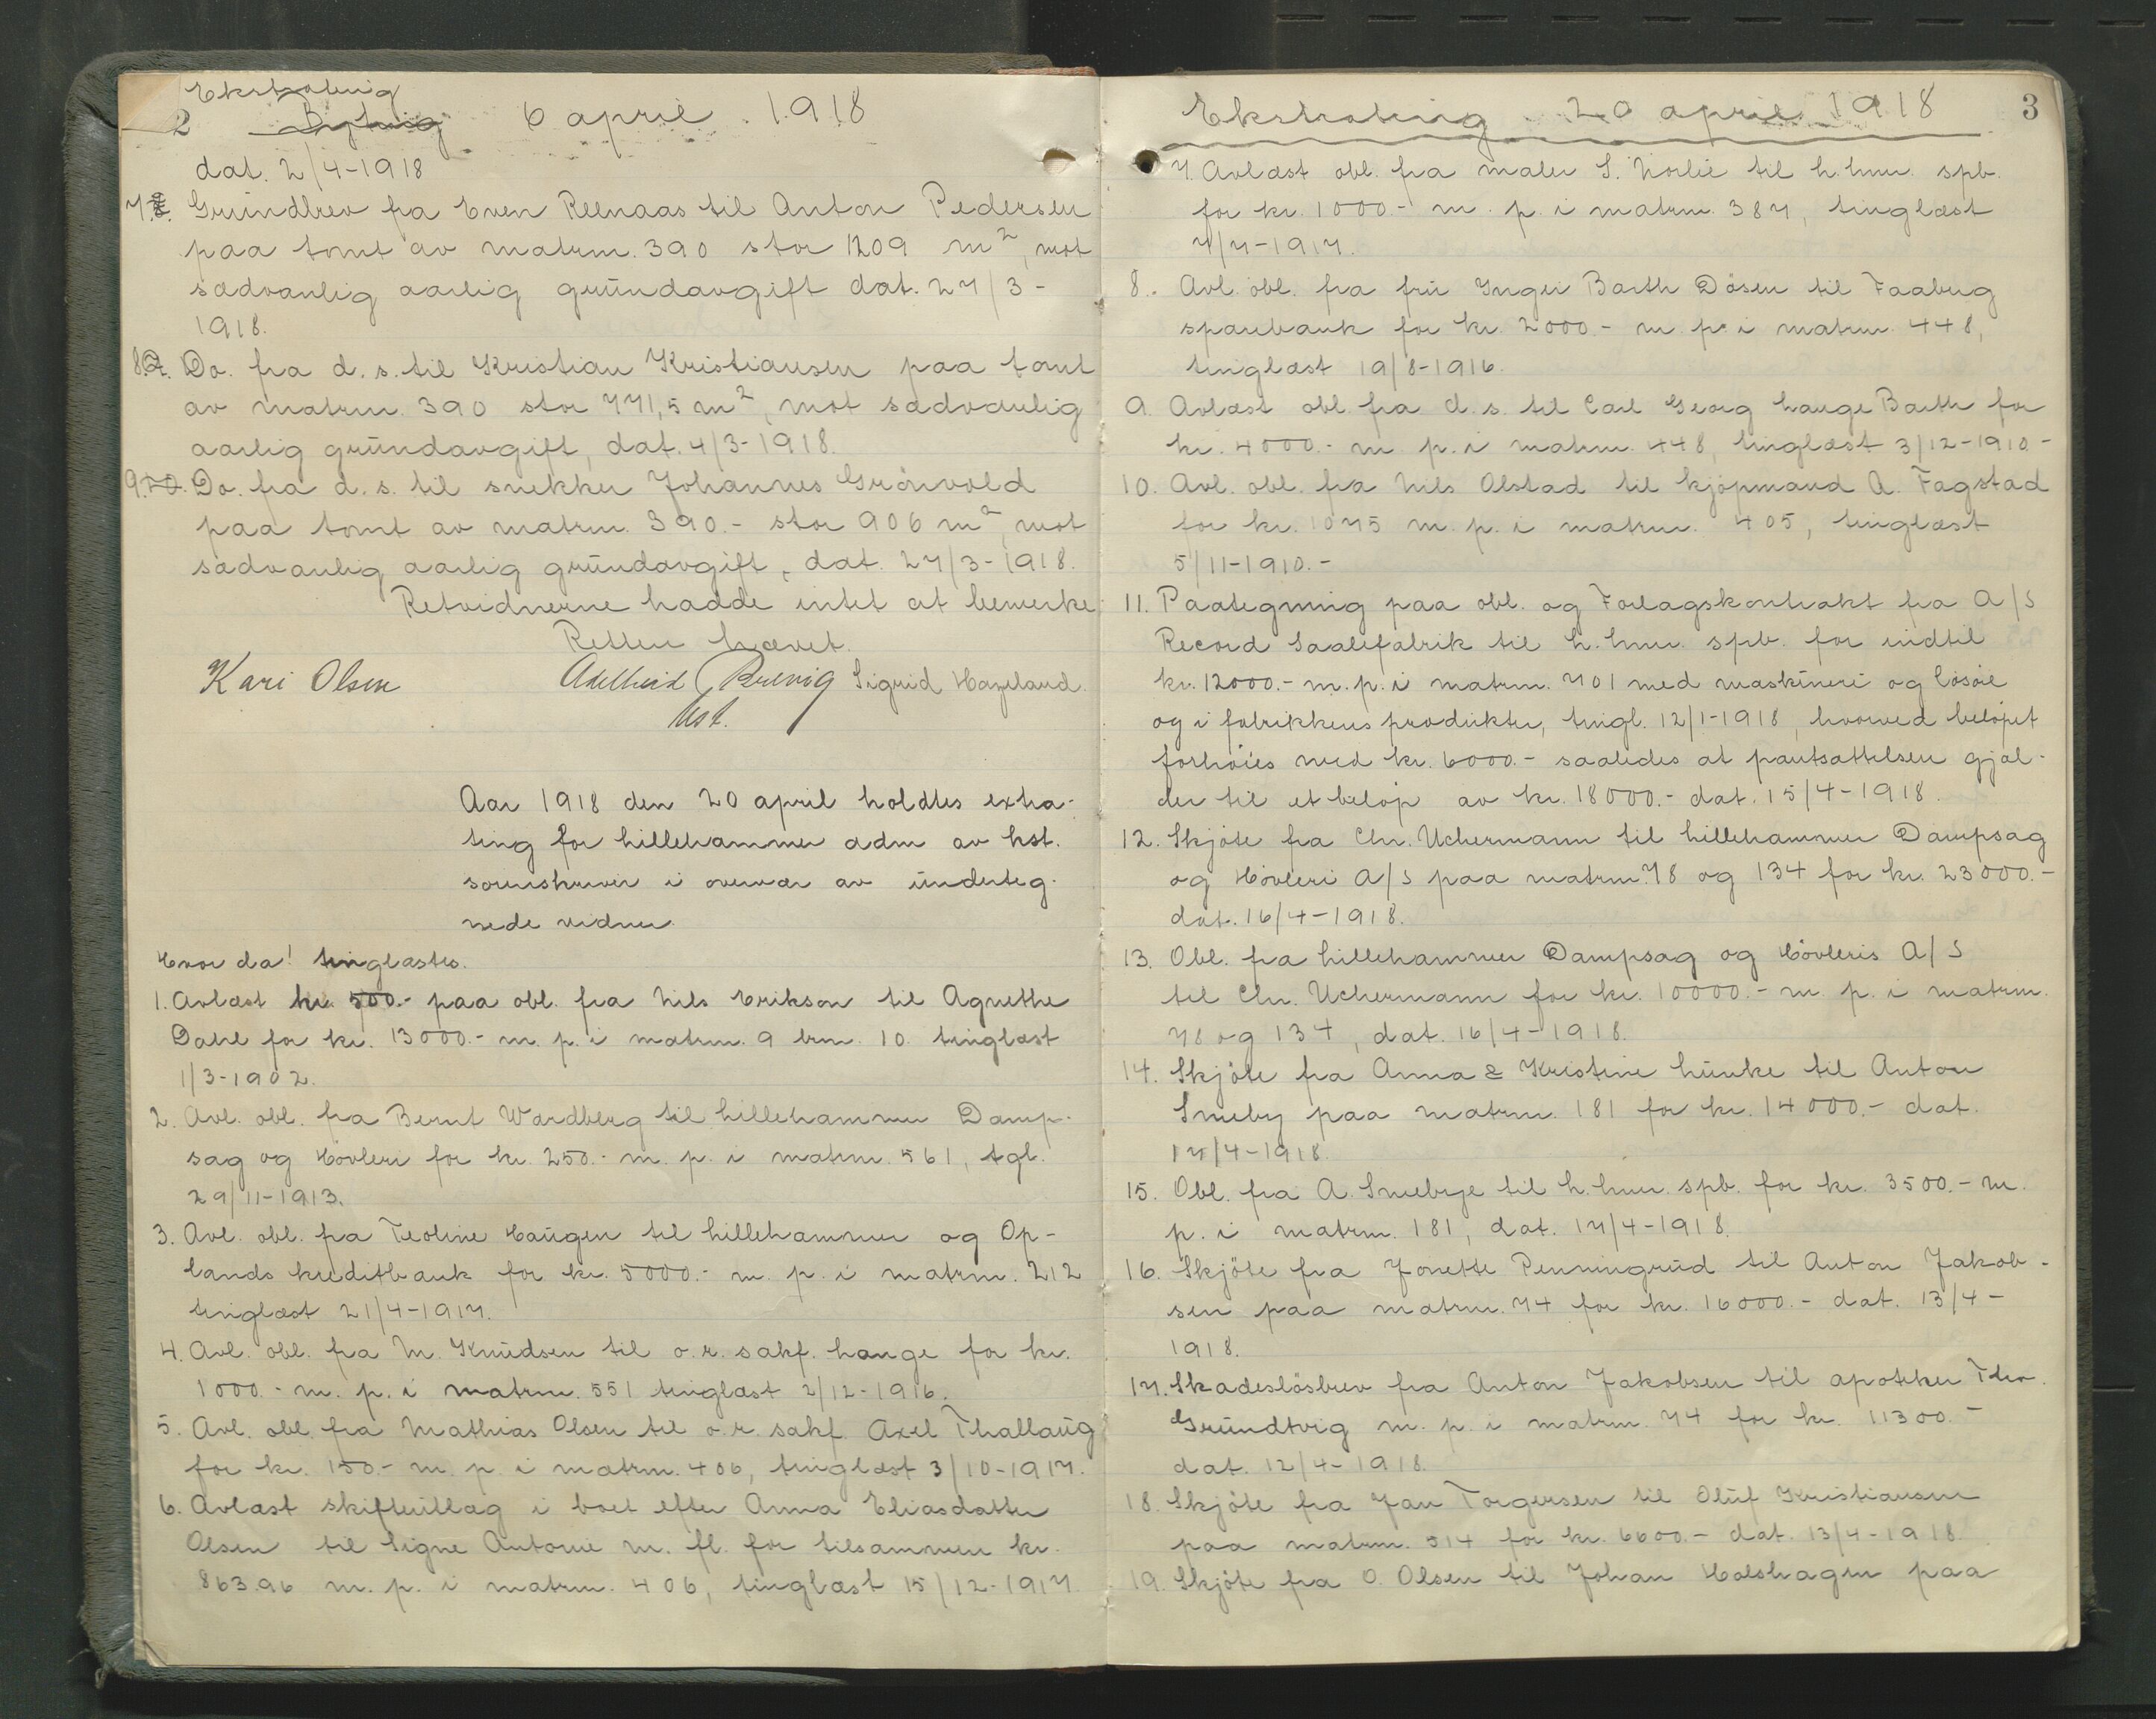 Ekstrating
2 Bything 6 april 1918
dat. 2/4-1918
7. Grundbrev fra Even Reenaas til Anton Pedersen
paa tomt av matrnr. 390 stor 1209 m², mot
sædvanlig aarlig grundavgift dat. 27/3-
1918.
8. Do. fra d. s. til Kristian Kristiansen paa tomt
av matrnr. 390 stor 771,5 m², mot sædvanlig
aarlig grundavgift, dat. 4/3-1918.
9. Do. fra d. s. til snekker Johannes Grönvold
paa tomt av matrnr. 390.- stor 906 m², mot
sædvanlig aarlig grundavgift, dat. 27/3-1918.
Retvidnerne hadde intet at bemerke
Retten hævet.
Kari Olsen Adelheid Brevig Sigrid Hageland.
kst.
Aar 1918 den 20 april holdtes extra-
ting for Lillehammer adm av kst.
sorenskriver i overvær av underteg-
nede vidner.
Hvor da! tinglæstes.
1. Avlæst kr. 500.- paa obl. fra Nils Erikson til Agnethe
Dahl for kr. 13000.- m. p. i matrnr. 9 brn. 10. tinglæst
1/3-1902.
2. Avl. obl. fra Bernt Wardberg til Lillehammer Damp-
sag og Hövleri for kr. 250.- m. p. i matrnr. 561, tgl.
29/11-1913.
3. Avl. obl. fra Teoline Haugen til Lillehammer og Op-
lands kreditbank for kr. 5000.- m. p. i matrnr. 212
tinglæst 21/4-1917.
4. Avl. obl. fra M. Knudsen til o. r. sakf. Lange for kr.
1000.- m. p. i matrnr. 551 tinglæst 2/12-1916.
5. Avl. obl. fra Mathias Olsen til o. r. sakf. Axel Thallaug
for kr. 150.- m. p. i matrnr. 406, tinglæst 3/10-1917.
6. Avlæst skifteutlæg i boet efter Anna Eliasdatter
Olsen til Signe Antonie m. fl. for tilsammen kr.
863.96 m. p. i matrnr. 406, tinglæst 15/12-1917.
Ekstrating 20 april 1918 3
7. Avlæst obl. fra maler S. Norlie til L.hmr. spb.
for kr. 1000.- m. p. i matrnr. 387, tinglæst
7/7-1917.
8. Avl. obl. fra fru Inger Barth Dösen til Faaberg
sparebank for kr. 2000.- m. p. i matrnr. 448,
tinglæst 19/8-1916.
9. Avlæst obl. fra d. s. til Carl Georg Lange Barth for
kr. 4000.- m. p. i matrnr. 448, tinglæst 3/12-1910-
10. Avl. obl. fra Nils Olstad til kjøpmand A. Fagstad
for kr. 1075 m. p. i matrnr. 405, tinglæst
5/11-1910.-
11. Paategning paa obl. og Forlagskontrakt fra A/S
Record Saalefabrik til L.hmr. spb. for indtil
kr. 12000.- m. p. i matrnr. 701 med maskineri og lösöre
og i fabrikkens produkter, tingl. 12/1-1918, hvorved belöpet
forhöies med kr. 6000.- saaledes at pantsættelsen gjæl-
der til et belöp av kr. 18000.- dat. 15/4-1918.
12. Skjöte fra Chr. Uchermann til Lillehammer Dampsag
og Hövleri A/S paa matrnr. 78 og 134 for kr. 23000.-
dat. 16/4-1918.
13. Obl. fra Lillehammer Dampsag og Hövleris A/S
til Chr. Uchermann for kr. 10000.- m. p. i matrnr.
78 og 134, dat. 16/4-1918.
14. Skjöte fra Anna & Kristine Lunke til Anton
Sneby paa matrnr. 181 for kr. 14000.- dat.
17/4-1918.
15. Obl. fra A. Snebye til L.hmr. spb. for kr. 3500.- m.
p. i matrnr. 181, dat. 17/4-1918.
16. Skjöte fra Jonette Penningrud til Anton Jakob-
sen paa matrnr. 74 for kr. 16000.- dat. 13/4-
1918.
17. Skadeslösbrev fra Anton Jakobsen til apoteker Thv.
Grundtvig m. p. i matrnr. 74 for kr. 11300.-
dat. 12/4-1918.
18. Skjöte fra Jan Torgersen til Oluf Kristiansen
paa matrnr. 514 for kr. 6600.- dat. 13/4-1918.
19. Skjöte fra O. Olsen til Johan Holshagen paa